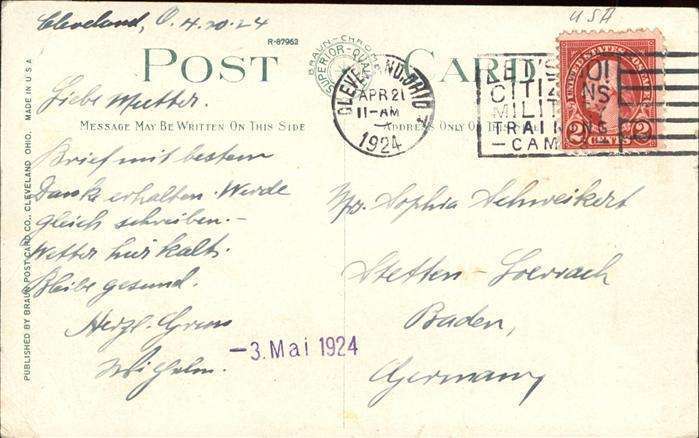 Cleveland, O. 4.20.24
USA
R-87962
POST CARD
BRAUN-CHROME
SUPERIOR-QUALITY
CLEVELAND, OHIO
APR 21
11-AM
1924
LET'S JOIN
CITIZENS
MILITARY
TRAINING
-CAMP
UNITED STATES POSTAGE
2 CENTS 2
MESSAGE MAY BE WRITTEN ON THIS SIDE
ADDRESS ONLY ON THIS
Liebe Mutter.
Brief mit bestem
Danke erhalten. Werde
gleich schreiben.-
Wetter hier kalt.
Bleibe gesund.
Herzl. Gruss
Wilhelm.
Mrs. Sophia Schweikert
Stetten - Loerrach
Baden,
Germany
-3. Mai 1924
PUBLISHED BY BRAUN POST CARD CO., CLEVELAND OHIO. MADE IN U.S.A